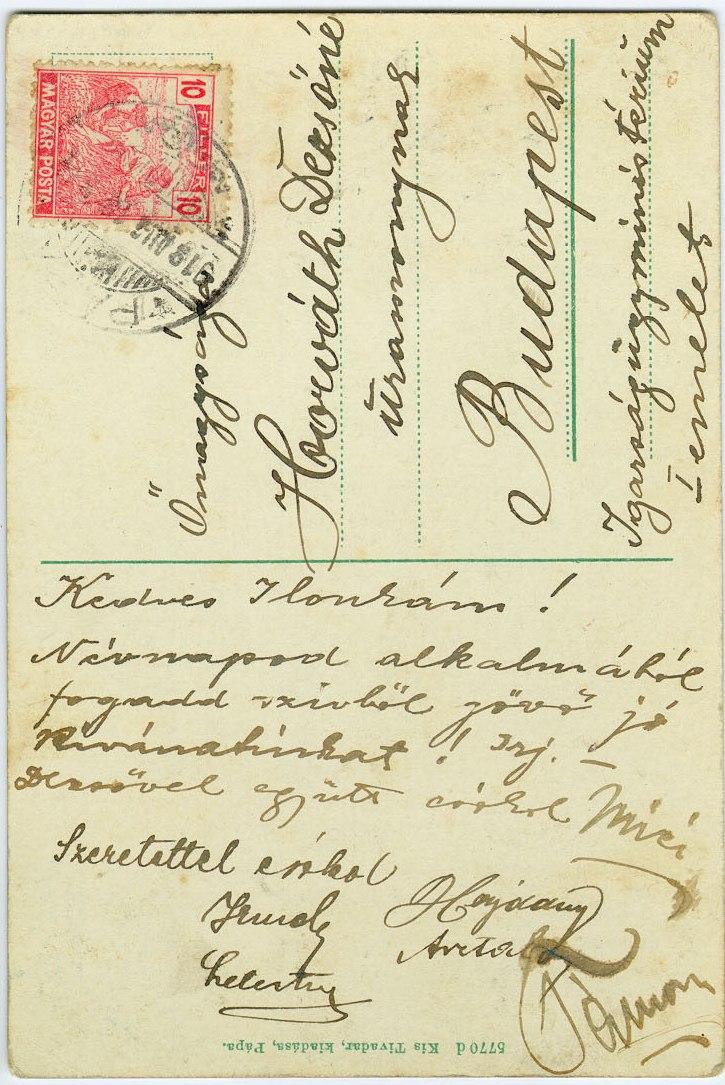 10 FILLÉR 10
MAGYAR POSTA
918 AUG
PÁPA
Őnagysága
Horváth Dezsőné
úrasszonynak
Budapest
Igazságügyminisztérium
I emelet
Kedves Ilonkám!
Névnapod alkalmából
fogadd szivből jövő jó
kivánatinkat! Irj. –
Dezsővel együtt csókol Mici
Szeretettel csókol
5770 d Kis Tivadar, kiadása, Pápa.